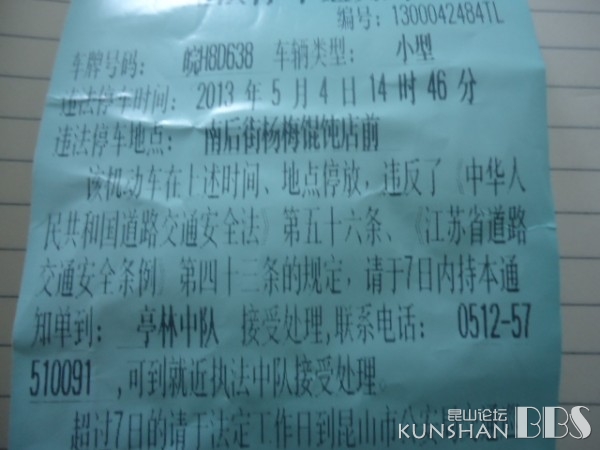 编号：1300042484TL
车牌号码： 皖H8D638 车辆类型： 小型
违法停车时间：2013 年 5 月 4 日 14 时 46 分
违法停车地点： 南后街杨梅馄饨店前
该机动车在上述时间、地点停放，违反了《中华人
民共和国道路交通安全法》第五十六条、《江苏省道路
交通安全条例》第四十三条的规定，请于7日内持本通
知单到： 亭林中队 接受处理,联系电话： 0512-57
510091 ,可到就近执法中队接受处理。
超过7日的请于法定工作日到昆山市公安
昆山论坛
KUNSHAN BBS